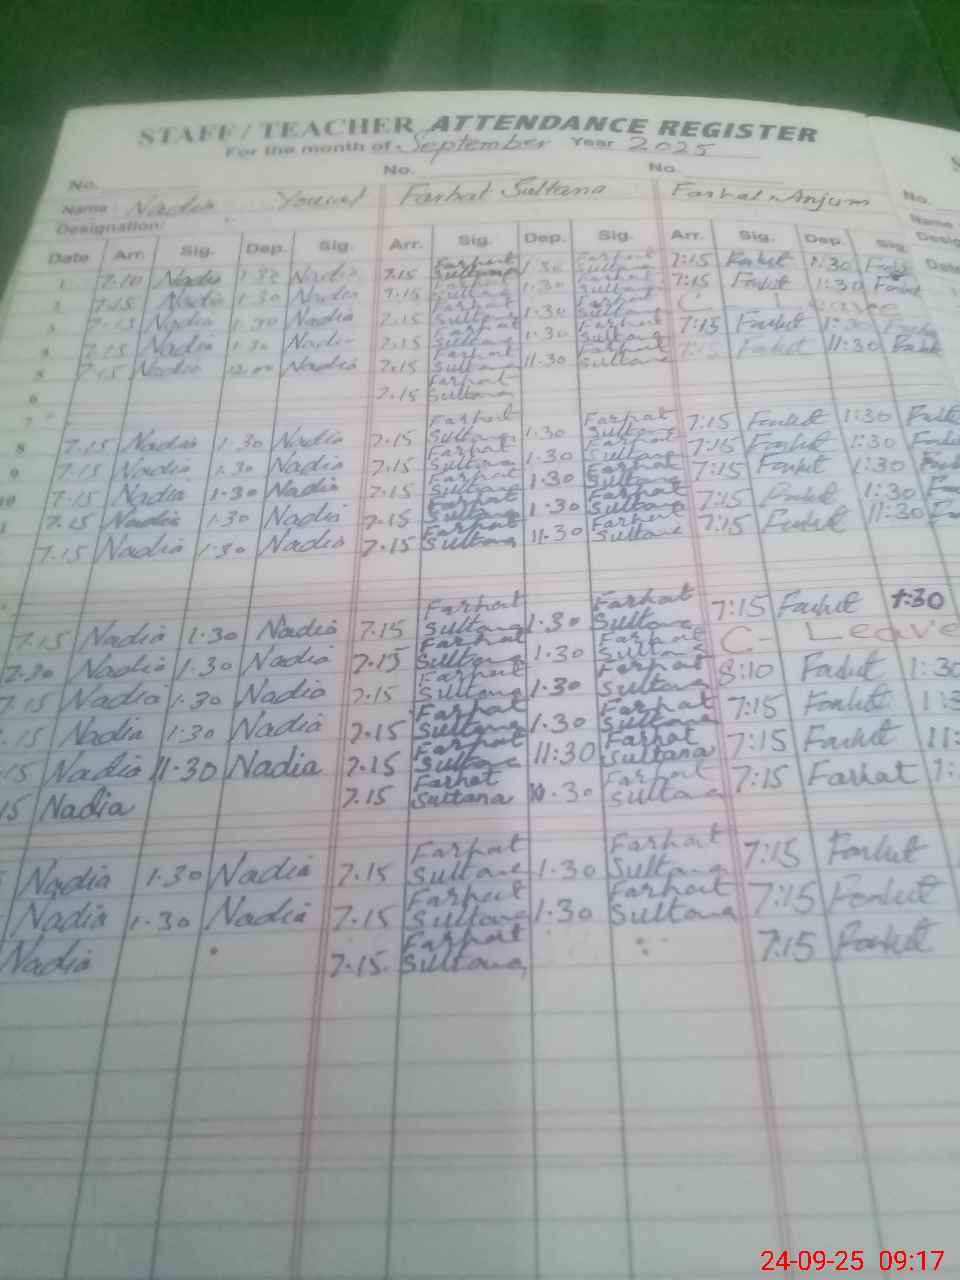 STAFF / TEACHER ATTENDANCE REGISTER
For the month of September Year 2025
No. No. No. No.
Name Nadia Yousaf Farhat Sultana Farhat Anjum Name
Designation:
Date Arr. Sig. Dep. Sig. Arr. Sig. Dep. Sig. Arr. Sig. Dep. Sig. Date
1 Nadia Nadia 7.15 Farhat Sultana 1.30 Farhat Sultana 7:15 Farhat 1:30
2 7.15 Nadia 1.30 Nadia 7.15 Farhat Sultana 1.30 Farhat Sultana 7:15 Farhat 1:30 Farhat
3 7.15 Nadia 1.30 Nadia 7.15 Farhat Sultana 1.30 Farhat Sultana C Leave
4 7.15 Nadia 1.30 Nadia 7.15 Farhat Sultana 1.30 Farhat Sultana 7:15 Farhat 1:30
5 7.15 Nadia 12.00 Nadia 7.15 Farhat Sultana 11.30 Farhat Sultana 7:15 Farhat 11:30
6 7.15 Farhat Sultana
7
8 7.15 Nadia 1.30 Nadia 7.15 Farhat Sultana 1.30 Farhat Sultana 7:15 Farhat 1:30
9 7.15 Nadia 1.30 Nadia 7.15 Farhat Sultana 1.30 Farhat Sultana 7:15 Farhat 1:30
10 7.15 Nadia 1.30 Nadia 7.15 Farhat Sultana 1.30 Farhat Sultana 7:15 Farhat 1:30
7.15 Nadia 1.30 Nadia 7.15 Farhat Sultana 1.30 Farhat Sultana 7:15 Farhat 1:30
7.15 Nadia 1.30 Nadia 7.15 Farhat Sultana 11.30 Farhat Sultana 7:15 Farhat 11:30
7.15 Nadia 1.30 Nadia 7.15 Farhat Sultana 1.30 Farhat Sultana 7:15 Farhat 1:30
7.30 Nadia 1.30 Nadia 7.15 Farhat Sultana 1.30 Farhat Sultana C- Leave
7.15 Nadia 1.30 Nadia 7.15 Farhat Sultana 1.30 Farhat Sultana 8:10 Farhat 1:30
.15 Nadia 1.30 Nadia 7.15 Farhat Sultana 1.30 Farhat Sultana 7:15 Farhat
15 Nadia 11.30 Nadia 7.15 Farhat Sultana 11:30 Farhat Sultana 7:15 Farhat 11:
15 Nadia 7.15 Farhat Sultana 10.30 Farhat Sultana 7:15 Farhat
Nadia 1.30 Nadia 7.15 Farhat Sultana 1.30 Farhat Sultana 7:15 Farhat
Nadia 1.30 Nadia 7.15 Farhat Sultana 1.30 Farhat Sultana 7:15 Farhat
Nadia 7.15 Farhat Sultana 7:15 Farhat
24-09-25 09:17